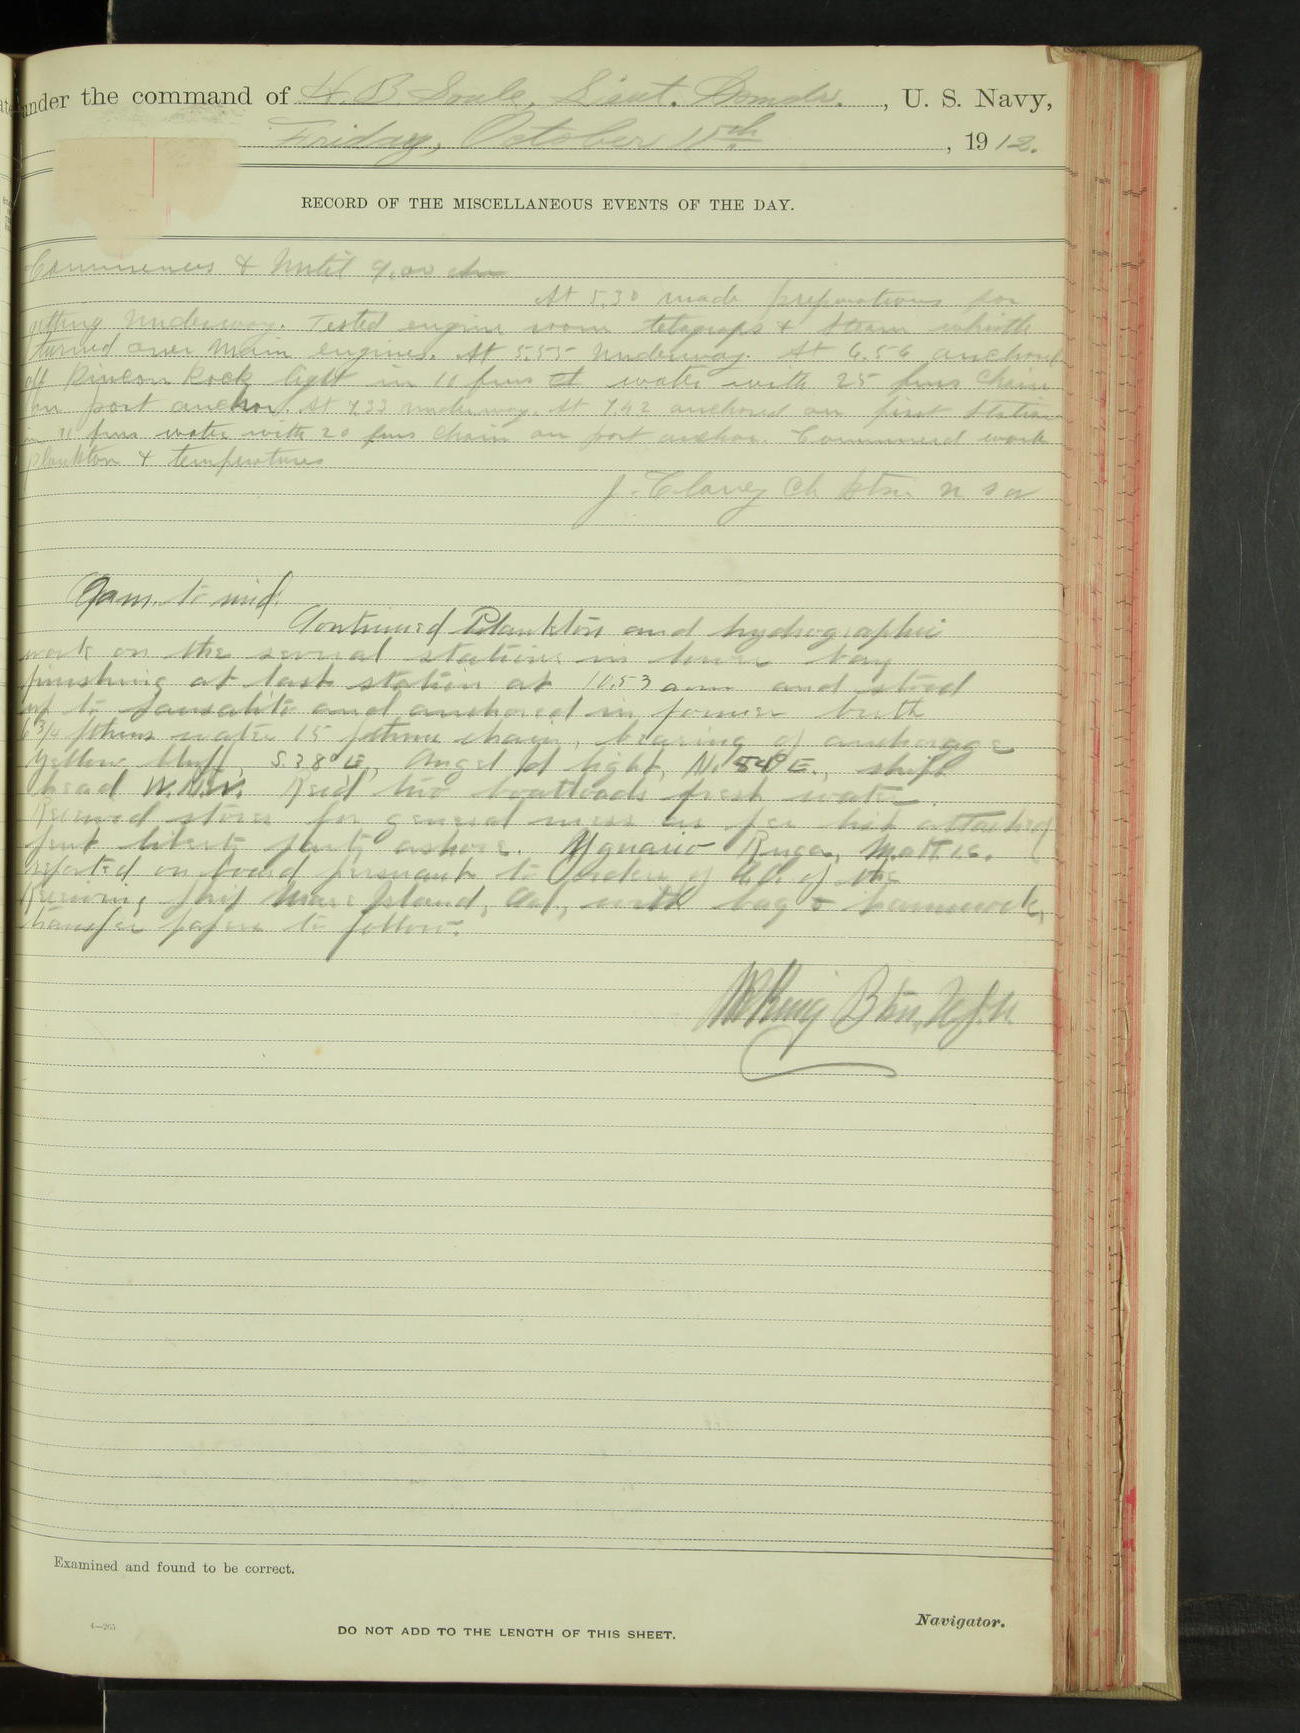 under the command of H. B. Soule, Lieut. Comdr. , U. S. Navy,
Friday, October 18th , 1912.
RECORD OF THE MISCELLANEOUS EVENTS OF THE DAY.
Commences & Until 9.00 am
At 5.30 made preparations for
getting underway. Tested engine room telegraps & steam whistle
turned over main engines. At 5.55 underway. At 6.56 anchored
off Rincon Rock light in 11 fms of water with 25 fms chain
on port anchor. At 7.33 underway. At 7.42 anchored on first station
in 11 fms water with 20 fms chain on port anchor. Commenced work
plankton & temperatures
J. Clancy Ch Btsn U S N
9 am. to mid.
Continued Plankton and hydrographic
work on the several stations in lower bay
finishing at last station at 11.53 a.m. and stood
up to Sausalito and anchored in former berth
6 3/4 fthms water 15 fthms chain, bearing of anchorage
Yellow bluff, S.38°E., Angel Id light, N.84°E., ship's
head W.N.W. Rec'd two boatloads fresh water.
Received stores for general mess as per list attached
sent liberty party ashore. Ygnacio Ruga, Matt 1c.
reported on board persuant to orders of C.O. of the
Receiving ship Mare Island, Cal., with bag & hammock,
transfer papers to follow.
King Btsn, U.S.N.
Examined and found to be correct.
4—265
DO NOT ADD TO THE LENGTH OF THIS SHEET.
Navigator.